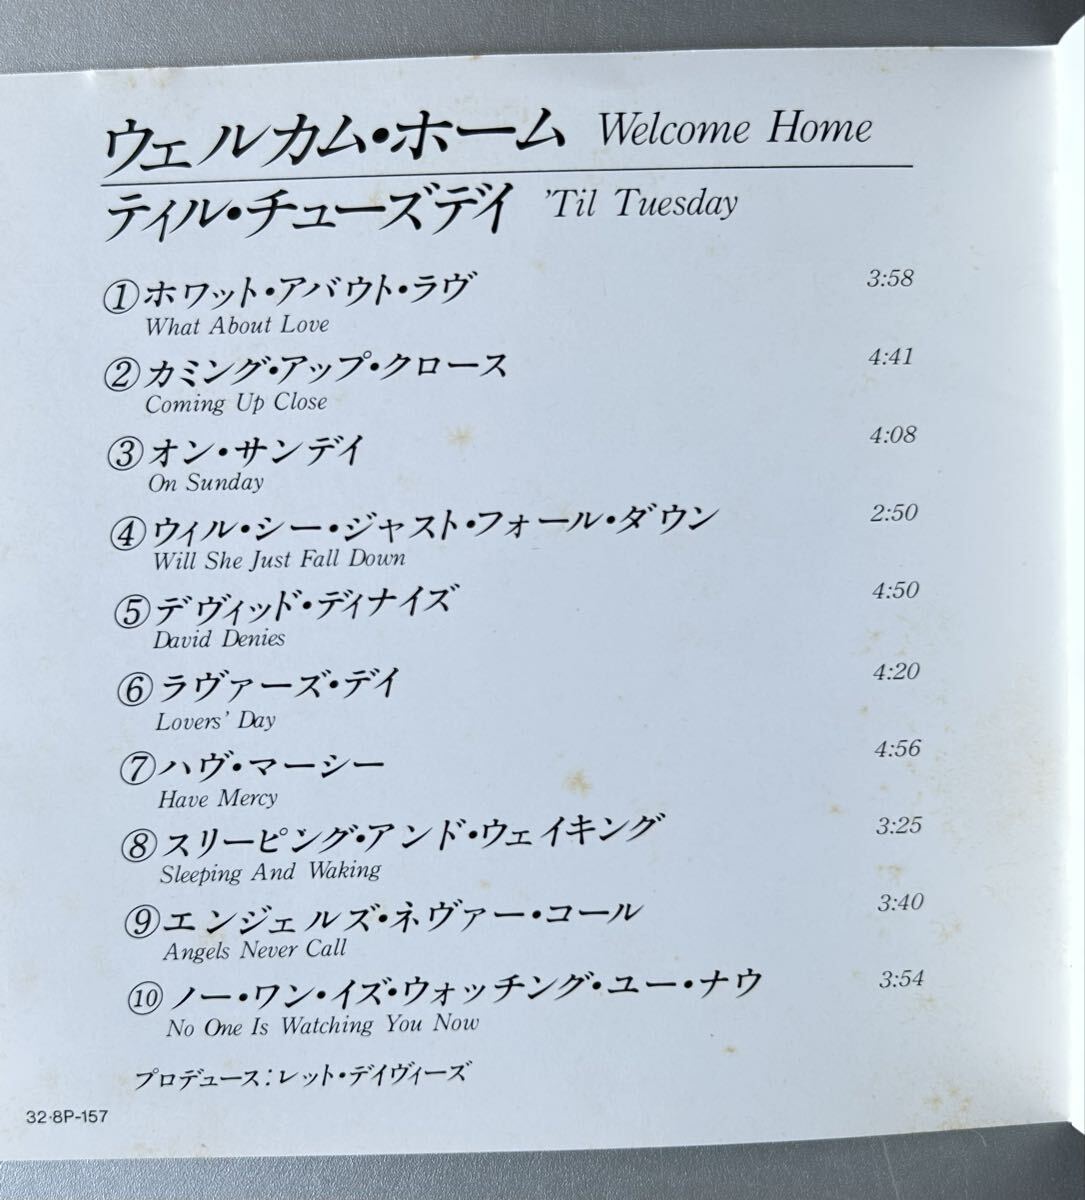 ウェルカム・ホーム Welcome Home
ティル・チューズデイ 'Til Tuesday
①ホワット・アバウト・ラヴ 3:58
What About Love
②カミング・アップ・クロース 4:41
Coming Up Close
③オン・サンデイ 4:08
On Sunday
④ウィル・シー・ジャスト・フォール・ダウン 2:50
Will She Just Fall Down
⑤デヴィッド・ディナイズ 4:50
David Denies
⑥ラヴァーズ・デイ 4:20
Lovers' Day
⑦ハヴ・マーシー 4:56
Have Mercy
⑧スリーピング・アンド・ウェイキング 3:25
Sleeping And Waking
⑨エンジェルズ・ネヴァー・コール 3:40
Angels Never Call
⑩ノー・ワン・イズ・ウォッチング・ユー・ナウ 3:54
No One Is Watching You Now
プロデュース:レット・デイヴィーズ
32・8P-157